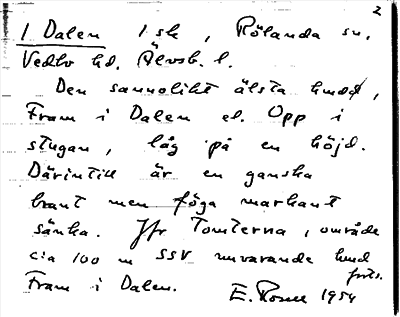 2
1 Dalen 1 sk , Rölanda sn,
Vedbo hd. Älvsb. l.
Den sannolikt älsta hmd,
Fram i Dalen el. Opp i
stugan, låg på en höjd.
Därintill är en ganska
brant men föga markant
sänka. Jfr Tomterna, område
c:a 100 m SSV nuvarande hmd
forts.
Fram i Dalen. E. Rosell 1954